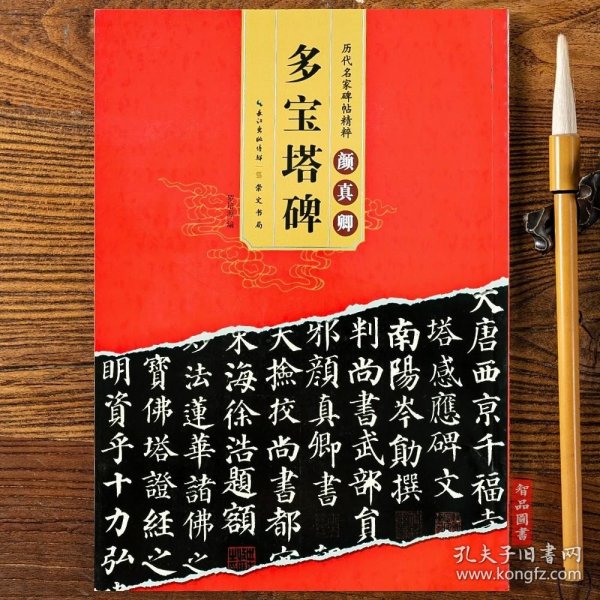 历代名家碑帖精粹
多宝塔碑
颜真卿
长江出版传媒
崇文书局
大唐西京千福寺
塔感應碑文
南陽岑勛撰
判尚書武部員
邪顏真卿書
大撿挍尚書都官
東海徐浩題額
妙法蓮華諸佛之
寶佛塔證經之
明資乎十力弘
智品圖書
孔夫子旧书网
www.kongfz.com